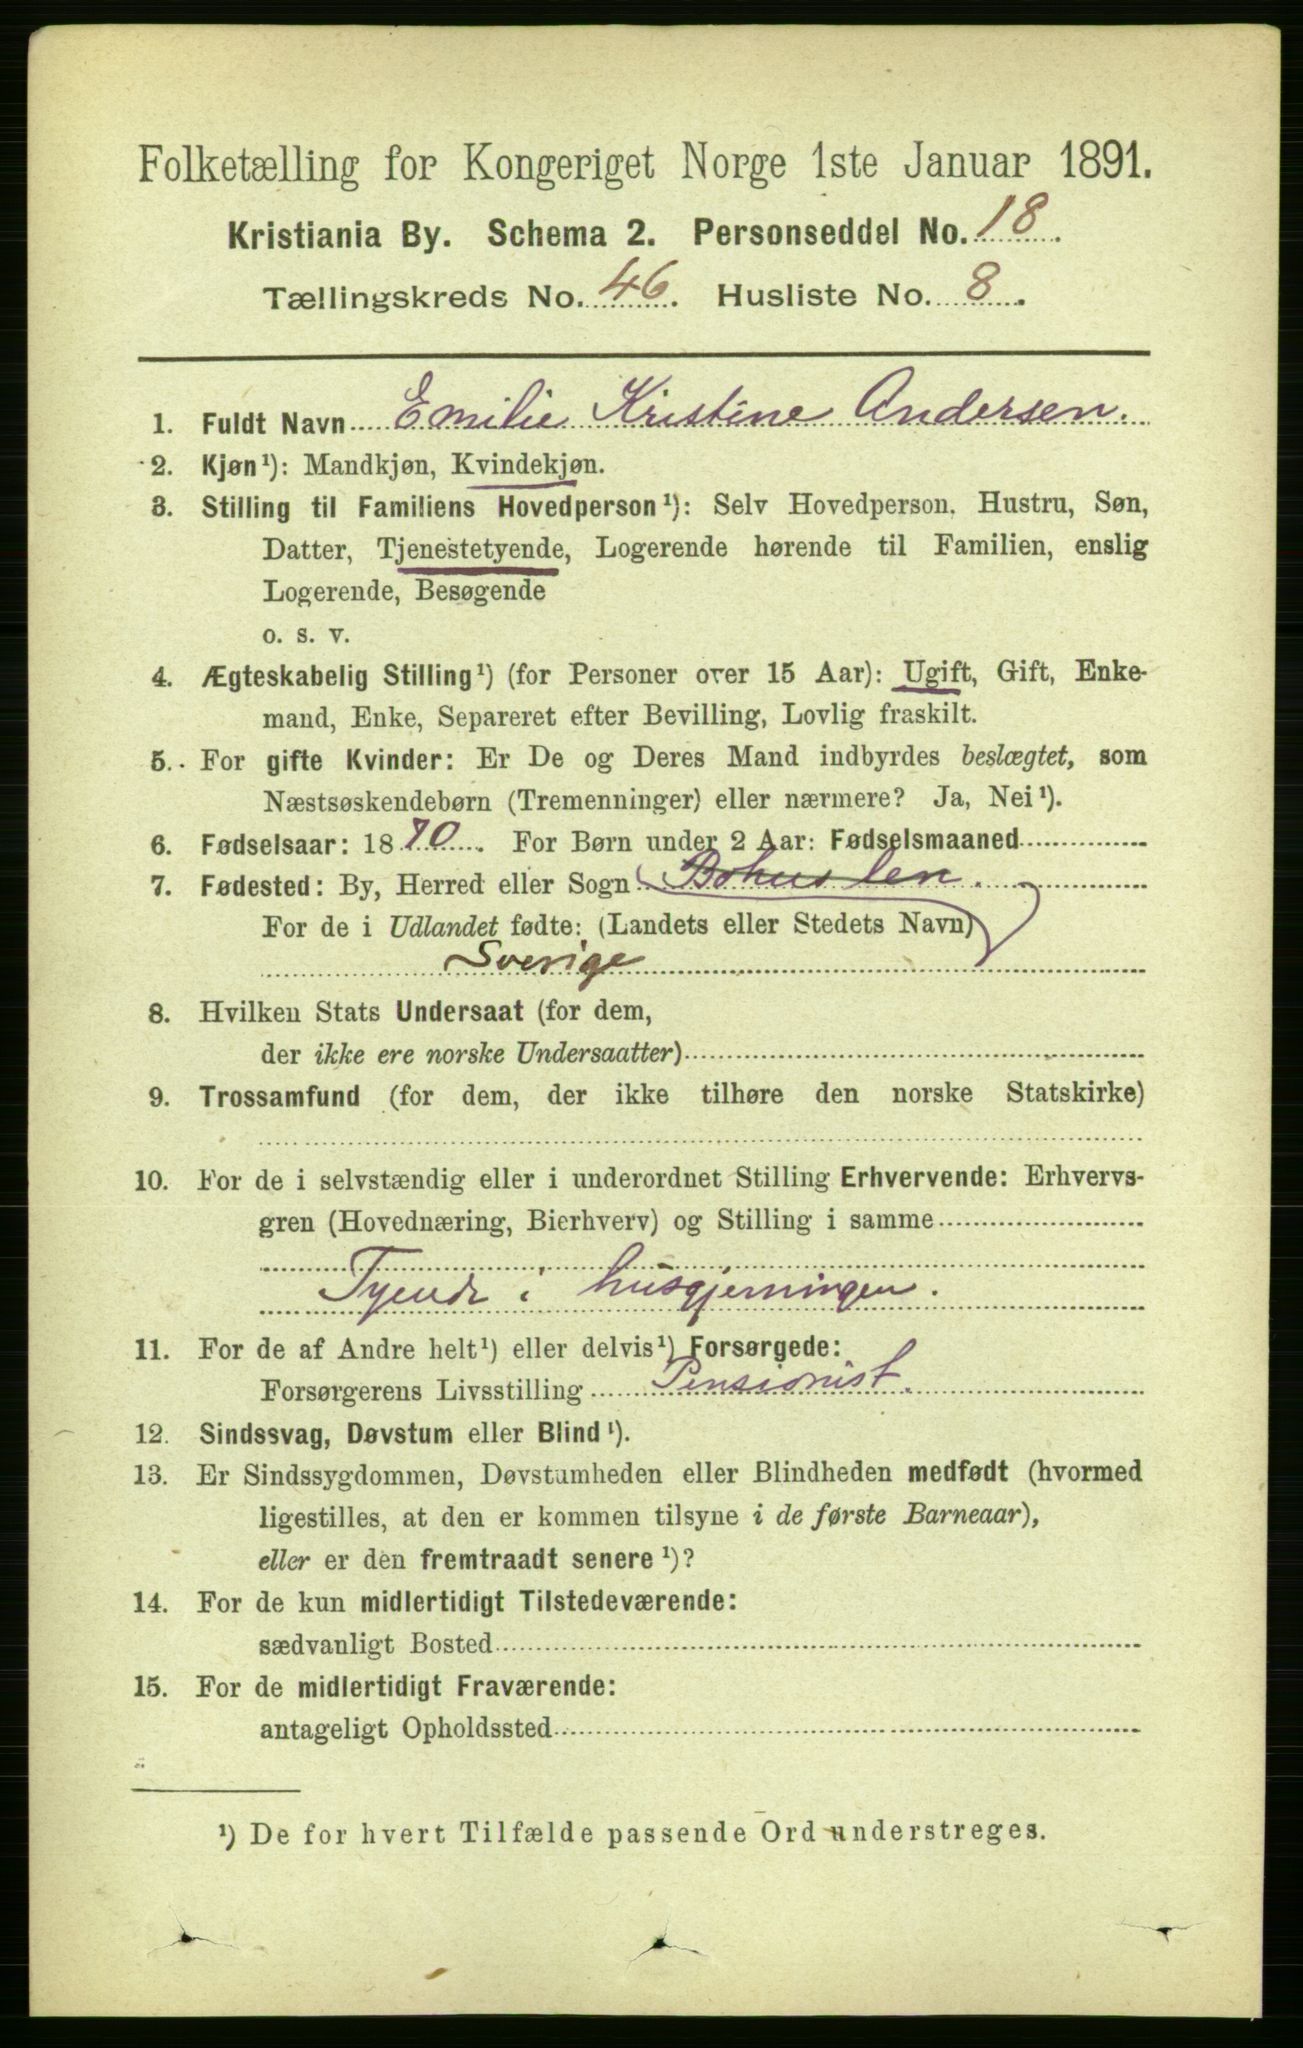 Folketælling for Kongeriget Norge 1ste Januar 1891.
Kristiania By. Schema 2. Personseddel No. 18.
Tællingskreds No. 46. Husliste No. 8.
1. Fuldt Navn Emilie Kristine Andersen.
2. Kjøn¹): Mandkjøn, Kvindekjøn.
3. Stilling til Familiens Hovedperson¹): Selv Hovedperson, Hustru, Søn,
Datter, Tjenestetyende, Logerende hørende til Familien, enslig
Logerende, Besøgende
o. s. v.
4. Ægteskabelig Stilling¹) (for Personer over 15 Aar): Ugift, Gift, Enke-
mand, Enke, Separeret efter Bevilling, Lovlig fraskilt.
5. For gifte Kvinder: Er De og Deres Mand indbyrdes beslægtet, som
Næstsøskendebørn (Tremenninger) eller nærmere? Ja, Nei¹).
6. Fødselsaar: 1870. For Børn under 2 Aar: Fødselsmaaned
7. Fødested: By, Herred eller Sogn Bohus len.
For de i Udlandet fødte: (Landets eller Stedets Navn)
Sverige
8. Hvilken Stats Undersaat (for dem,
der ikke ere norske Undersaatter)
9. Trossamfund (for dem, der ikke tilhøre den norske Statskirke)
10. For de i selvstændig eller i underordnet Stilling Erhvervende: Erhvervs-
gren (Hovednæring, Bierhverv) og Stilling i samme
Tyende i husgjerningen.
11. For de af Andre helt¹) eller delvis¹) Forsørgede:
Forsørgerens Livsstilling Pensionist.
12. Sindssvag, Døvstum eller Blind¹).
13. Er Sindssygdommen, Døvstumheden eller Blindheden medfødt (hvormed
ligestilles, at den er kommen tilsyne i de første Barneaar),
eller er den fremtraadt senere¹)?
14. For de kun midlertidigt Tilstedeværende:
sædvanligt Bosted
15. For de midlertidigt Fraværende:
antageligt Opholdssted
¹) De for hvert Tilfælde passende Ord understreges.